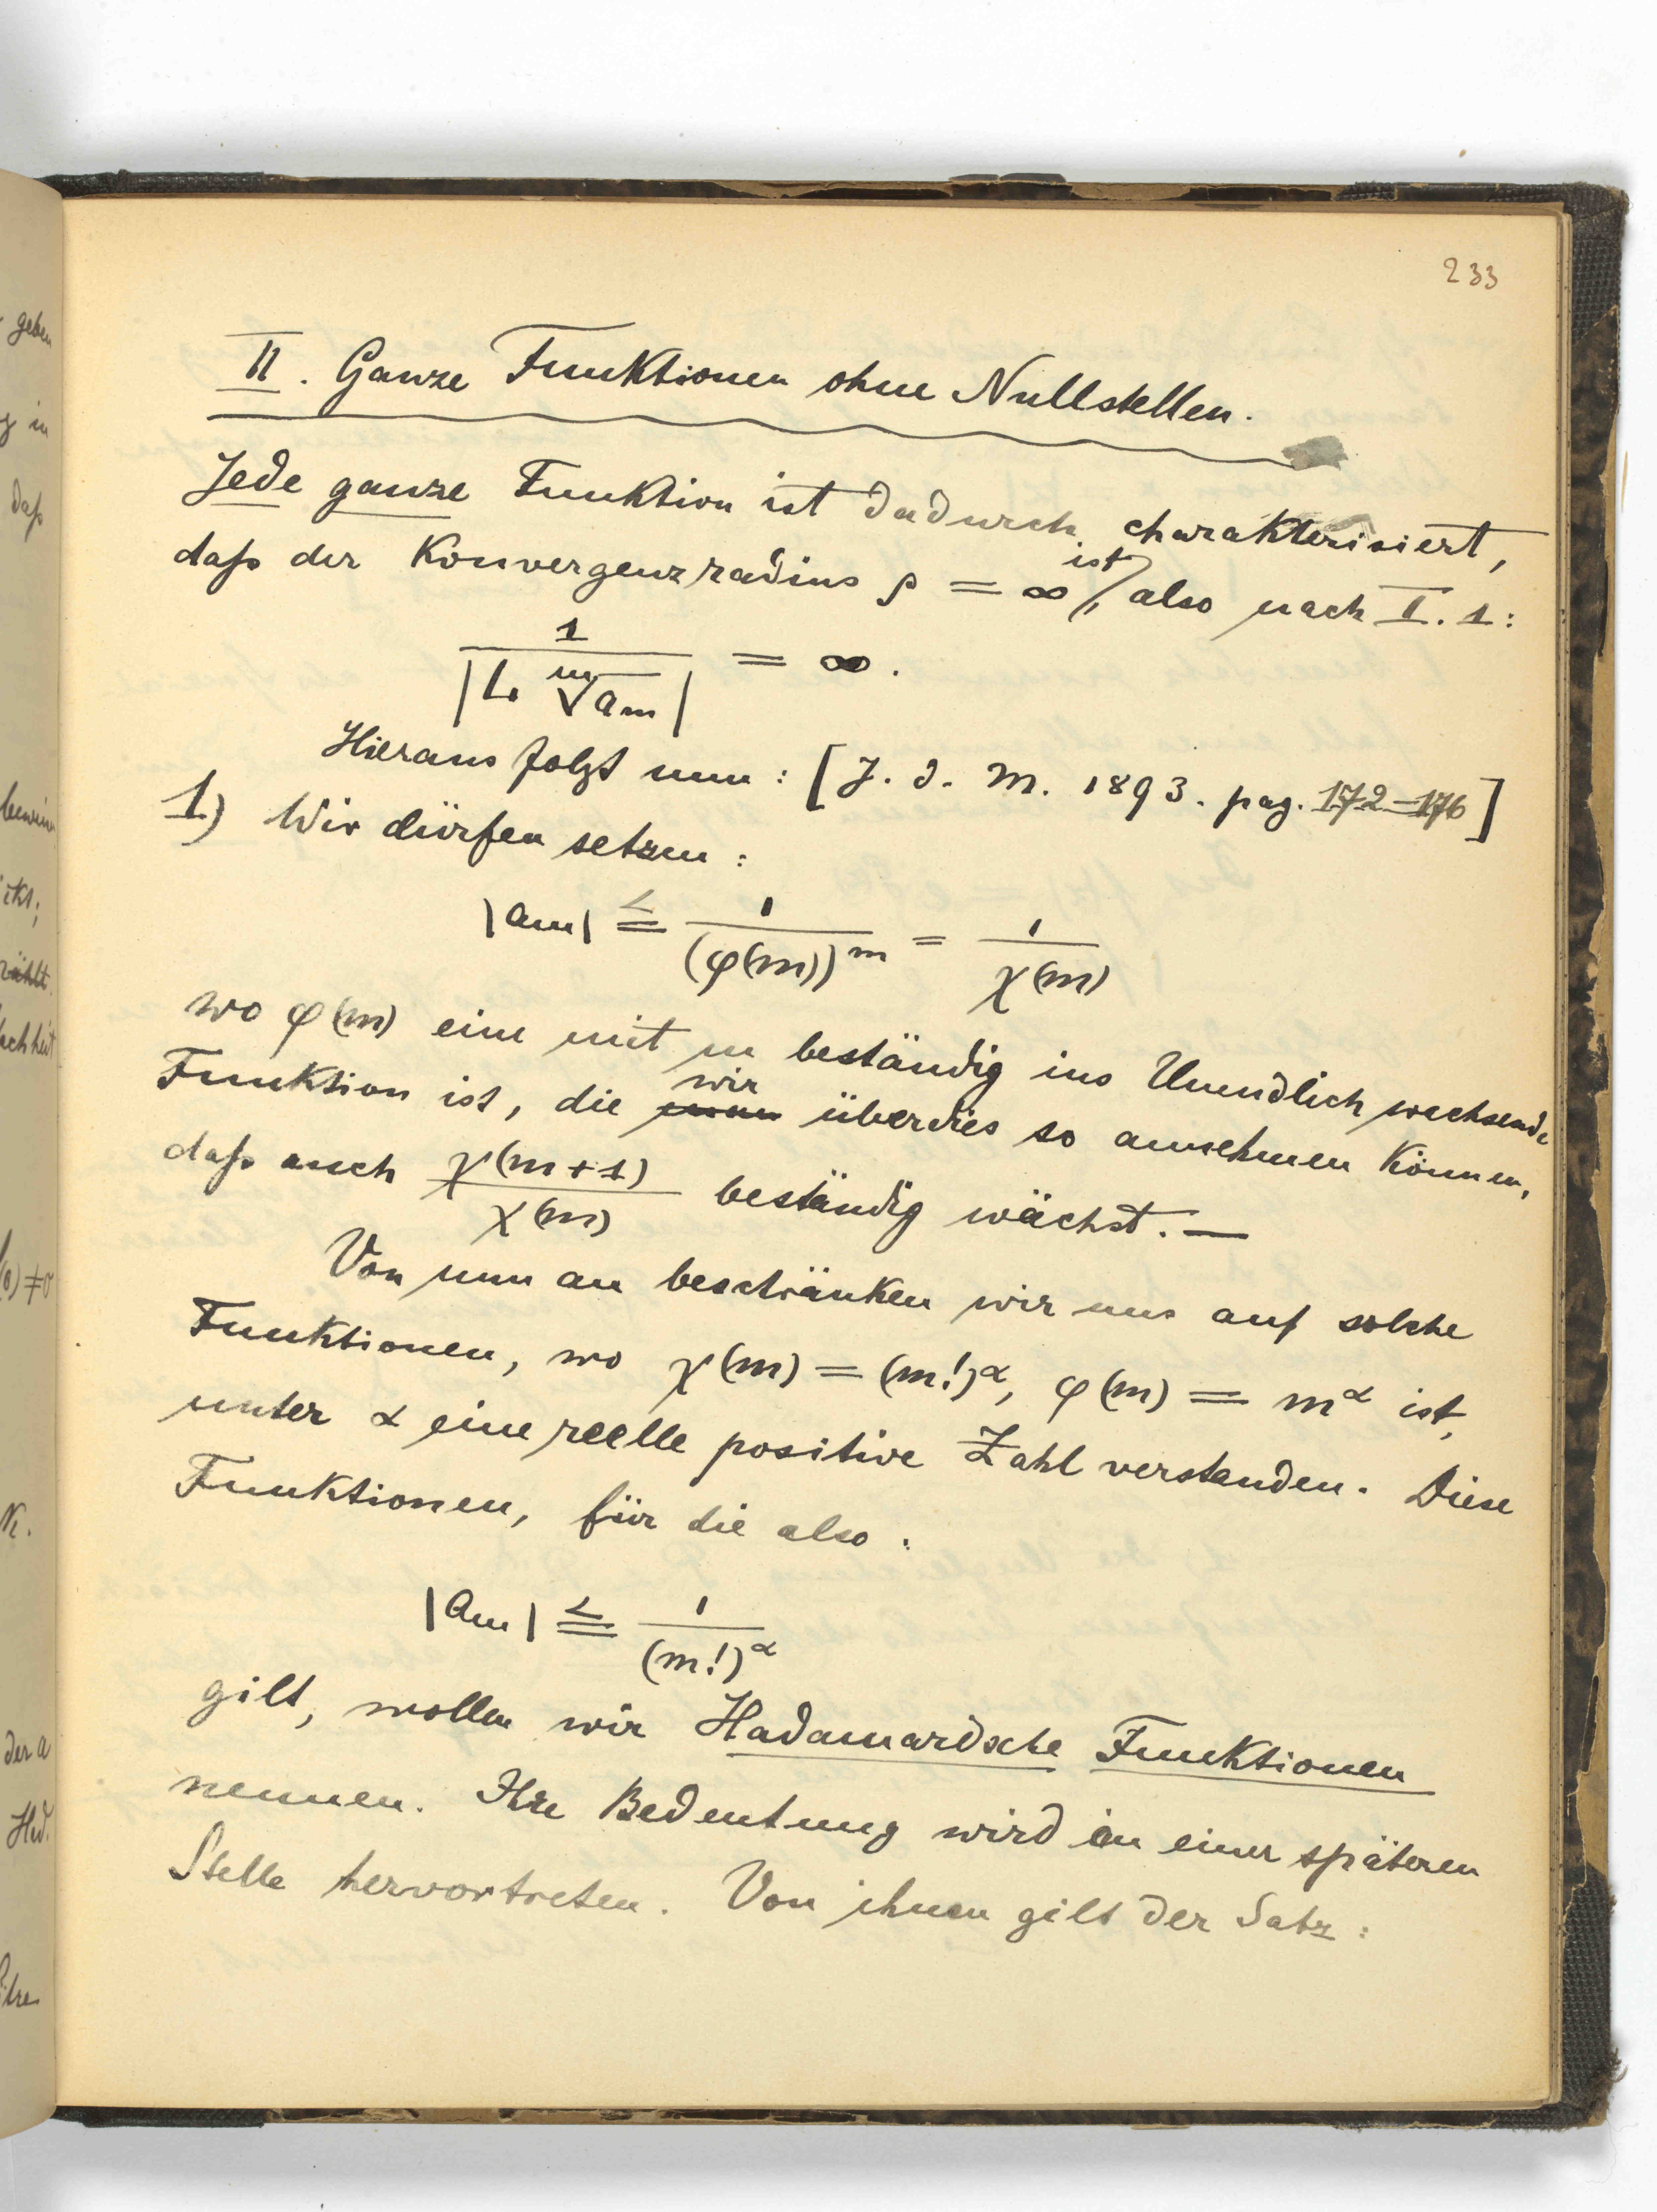 233
II. Ganze Funktionen ohne Nullstellen.
Jede ganze Funktion ist dadurch charakterisiert,
daß der Konvergenzradius ρ = ∞ ist, also nach I. 1:
1 / |L. ᵐ√aₘ| = ∞.
Hieraus folgt nun: [J. d. M. 1893. pag. 172–176]
1) Wir dürfen setzen:
|aₘ| ≦ 1 / (φ(m))ᵐ = 1 / χ(m)
wo φ(m) eine mit m beständig ins Unendlich wachsende
Funktion ist, die wir überdies so annehmen können,
daß auch χ(m+1) / χ(m) beständig wächst. —
Von nun an beschränken wir uns auf solche
Funktionen, wo χ(m) = (m!)^α, φ(m) = m^α ist,
unter α eine reelle positive Zahl verstanden. Diese
Funktionen, für die also:
|aₘ| ≦ 1 / (m!)^α
gilt, wollen wir Hadamardsche Funktionen
nennen. Ihre Bedeutung wird an einer späteren
Stelle hervortreten. Von ihnen gilt der Satz:
geben
in
daß
der a